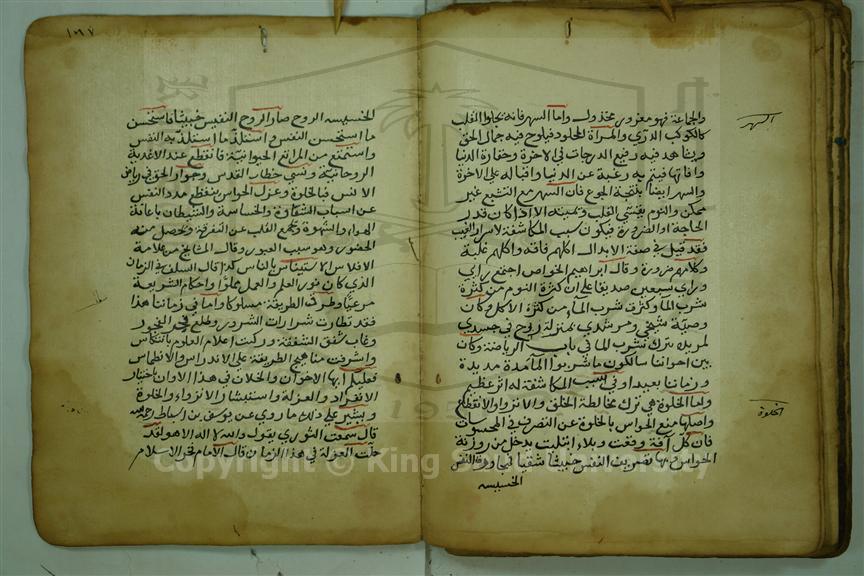 والجماعة فهو مغرور مخذول واما السهر فانه يجلوا القلب
كالكوكب الدري والمرآة المجلوة فيلوح فيه جمال الحق
ويشاهد فيه رفيع الدرجات في الاخرة وحقارة الدنيا
وافاتها فيتم به رغبة عن الدنيا واقباله على الاخرة
والسهر ايضا نتيجة الجوع فان السهر مع الشبع غير
ممكن والنوم يقسي القلب ويميته الا اذا كان قدر
الحاجة او الضرورة فيكون سبب المكاشفة لاسرار الغيب
فقد قيل في صفة الابدال اكلهم فاقة واكلهم غلبة
وكلامهم ضرورة وقال ابراهيم الخواص اجتمع راي
وراي سبعين صديقا على ان كثرة النوم من كثرة
شرب الماء وكثرة شرب الماء من كثرة الاكل وكان
وصية شيخي ومرشدي بمنزلة روح في جسدي
لمريده بترك شرب الماء في باب الرياضة وكان
بين اخواننا سالكون ما شربوا الماء مدة مديدة
و زمانا بعيدا وفي السبب المكاشفة له اثر عظيم
واما الخلوة هي ترك مخالطة الخلق والانزواء والانقطاع
واصلها منع الحواس بالخلوة عن التصرف في المحسوسات
فان كل آفة وقعت وبلاء ابتليت يدخل من روزنة
الحواس وبها تصريت النفس خبيثا شقيا لمجاورة النفس
الخسيسه
السهر
الخلوة
١٥٧
الخسيسه الروح صار الروح النفيس خبيثا فاستحسن
ما استحسن النفس واستلذ ما استلذ به النفس
واستمتع من المراتع الحيوانية فانقطع عند الاغذية
الروحانية ونسي خطاب القدس وجوار الحق في رياض
الانس فبالخلوة وعزل الحواس ينقطع مدد النفس
عن اسباب الشقاوة والخساسة والشيطان باعانة
الهواء والشهوة ويجمع القلب عن التفرقة ويحصل منه
الحضور وهو سبب العبور وقال المشايخ من علامة
الافلاس الاستيناس بالناس كذا قال السلف في الزمان
الذي كان نور العلم والعمل مملوا واحكام الشريعة
مرعيا وطرق الطريقة مسلوكا واما في زماننا هذا
فقد تطارت شرارات الشرور وطلع في النحور
وغاب شفق الشفقة وركنت اعلام العلوم بانتكاس
واشرفت مناهج الطريقة على الاندراس والانطماس
فعليكم ايها الاخوان والخلان في هذا الاوان باختيار
الانفراد والعزلة واستيشار الانزواء والخلوة
ويشير على ذلك ما روي عن يوسف بن اسباط رحمه الله
قال سمعت الثوري يقول والله لا اله الا هو لقد
حلت العزلة في هذا الزمان قال الامام لحجة الاسلام
Copyright © King Saud University